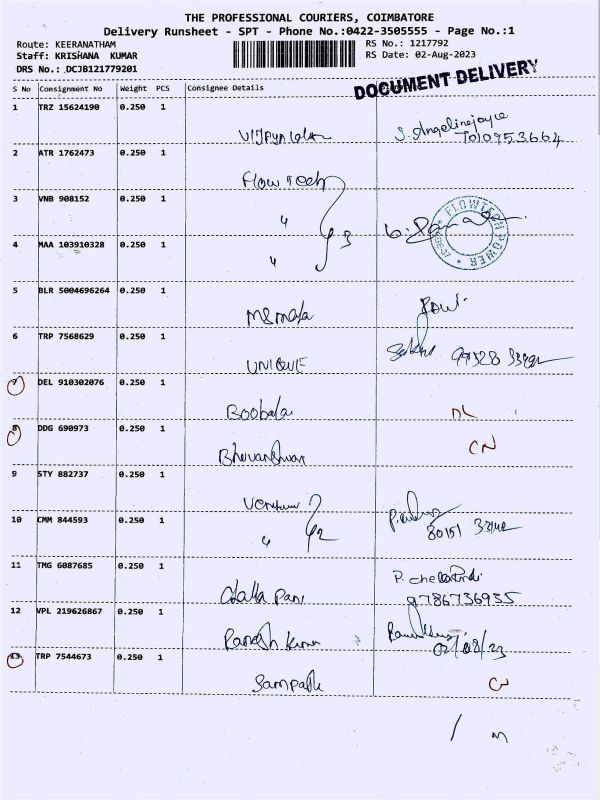 THE PROFESSIONAL COURIERS, COIMBATORE
Delivery Runsheet - SPT - Phone No.:0422-3505555 - Page No.:1
Route: KEERANATHAM
RS No.: 1217792
Staff: KRISHANA KUMAR
RS Date: 02-Aug-2023
DRS No.: DCJB121779201
DOCUMENT DELIVERY
S No Consignment No Weight PCS Consignee Details
1 TRZ 15624190 0.250 1
S. Angelinejoyce
2 ATR 1762473 0.250 1
Flow Tech
3 VNB 908152 0.250 1
"
FLOWTECH POWER
4 MAA 103910328 0.250 1
"
5 BLR 5004696264 0.250 1
6 TRP 7568629 0.250 1
UNIQUE
7 DEL 910302076 0.250 1
Boobala
8 DDG 690973 0.250 1
CN
Bhuvaneshwari
9 STY 882737 0.250 1
10 CMM 844593 0.250 1
"
11 TMG 6087685 0.250 1
9786736935
12 VPL 219626867 0.250 1
02/08/23
13 TRP 7544673 0.250 1
Sampath